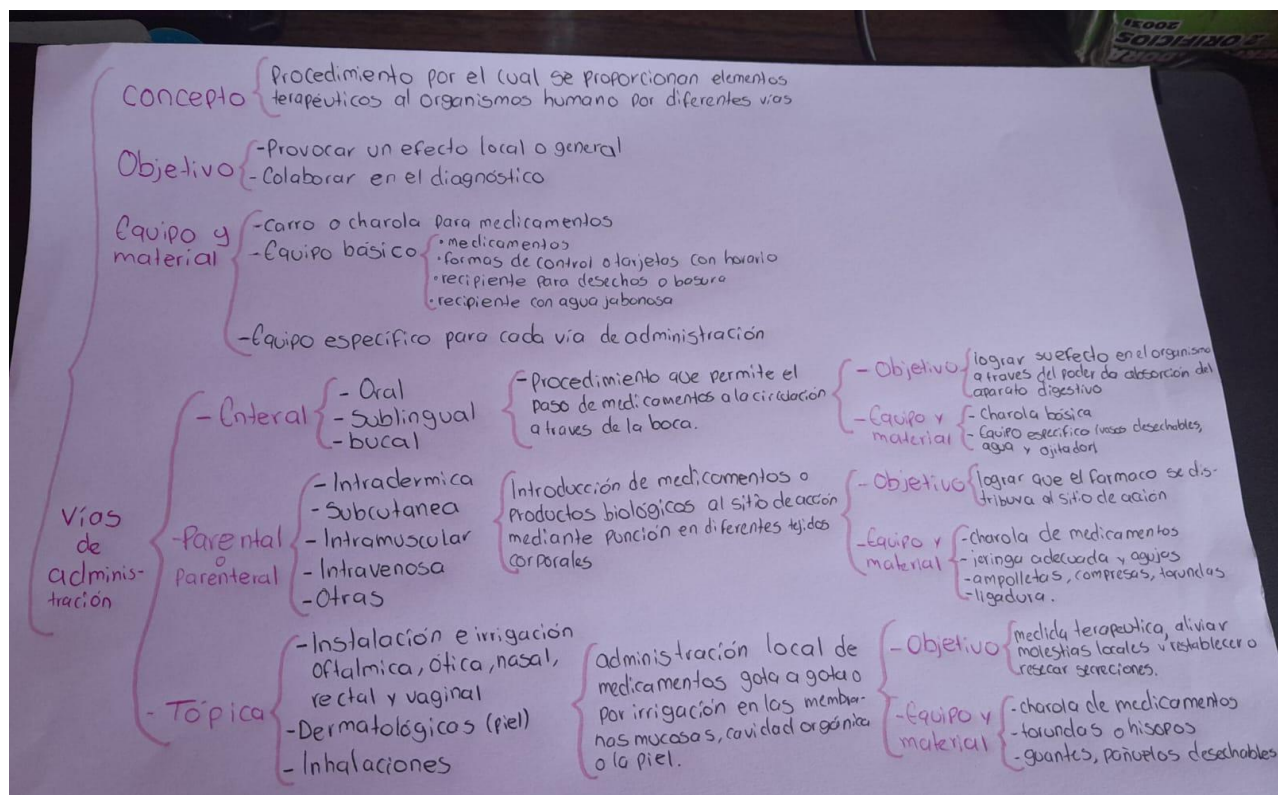 ORIFICIOS
20031
Concepto
Procedimiento por el cual se proporcionan elementos
terapéuticos al organismos humano por diferentes vias
Objetivo
-Provocar un efecto local o general
-Colaborar en el diagnóstico
Equipo y
material
-Carro o charola para medicamentos
-Equipo básico
·medicamentos
·formas de control o tarjetas con horario
·recipiente para desechos o basura
·recipiente con agua jabonosa
-Equipo específico para cada vía de administración
Vías
de
adminis-
tración
- Enteral
- Oral
- Sublingual
- bucal
-Procedimiento que permite el
paso de medicamentos a la circulación
a traves de la boca.
- Objetivo
lograr su efecto en el organismo
a traves del poder de absorción del
aparato digestivo
- Equipo y
material
- charola básica
- Equipo específico (vasos desechables,
agua y agitador)
-Parental
o
Parenteral
- Intradermica
- Subcutanea
- Intramuscular
- Intravenosa
- Otras
Introducción de medicamentos o
productos biológicos al sitio de acción
mediante punción en diferentes tejidos
corporales
- Objetivo
lograr que el farmaco se dis-
tribuya al sitio de acción
-Equipo y
material
-charola de medicamentos
-jeringa adecuada y agujas
-ampolletas, compresas, torundas
-ligadura.
- Tópica
-Instalación e irrigación
oftalmica, ótica, nasal,
rectal y vaginal
-Dermatológicos (piel)
- Inhalaciones
administración local de
medicamentos gota a gota o
por irrigación en las membra-
nas mucosas, cavidad orgánica
o la piel.
- Objetivo
medida terapeutica, aliviar
molestias locales y restablecer o
resecar secreciones.
-Equipo y
material
-charola de medicamentos
-torundas o hisopos
-guantes, pañuelos desechables